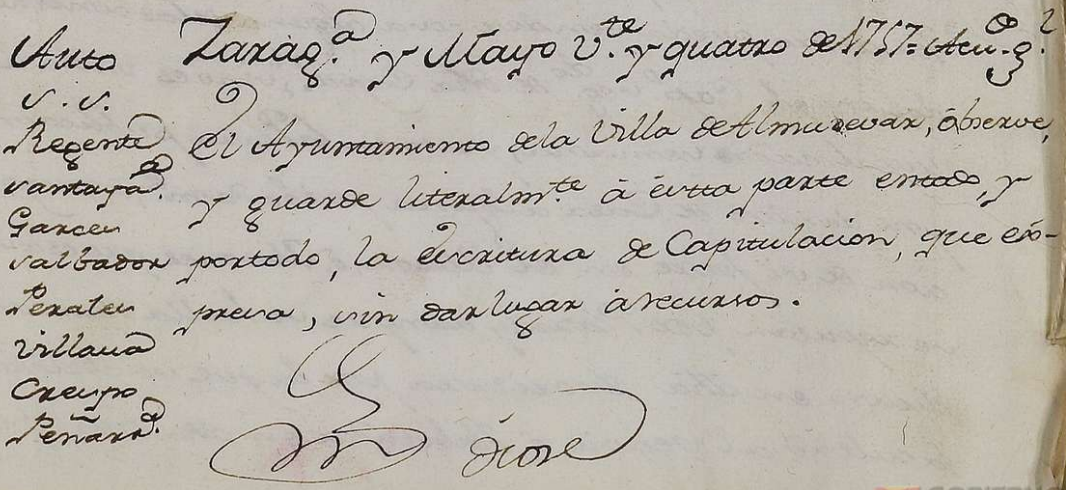 Auto
S. S.
Regente
Santaya.ª
Garces
Salbador
Perales
Villava
Crespo
Peñarr.ª
Zarag.ª y Mayo v.te y quatro de 1757= Acu.do g.l
El Ayuntamiento dela Villa de Almudevar, observe,
y guarde literalm.te à esta parte entodo, y
portodo, la escritura de Capitulacion, que ex-
presa, sin dar lugar à recursos.